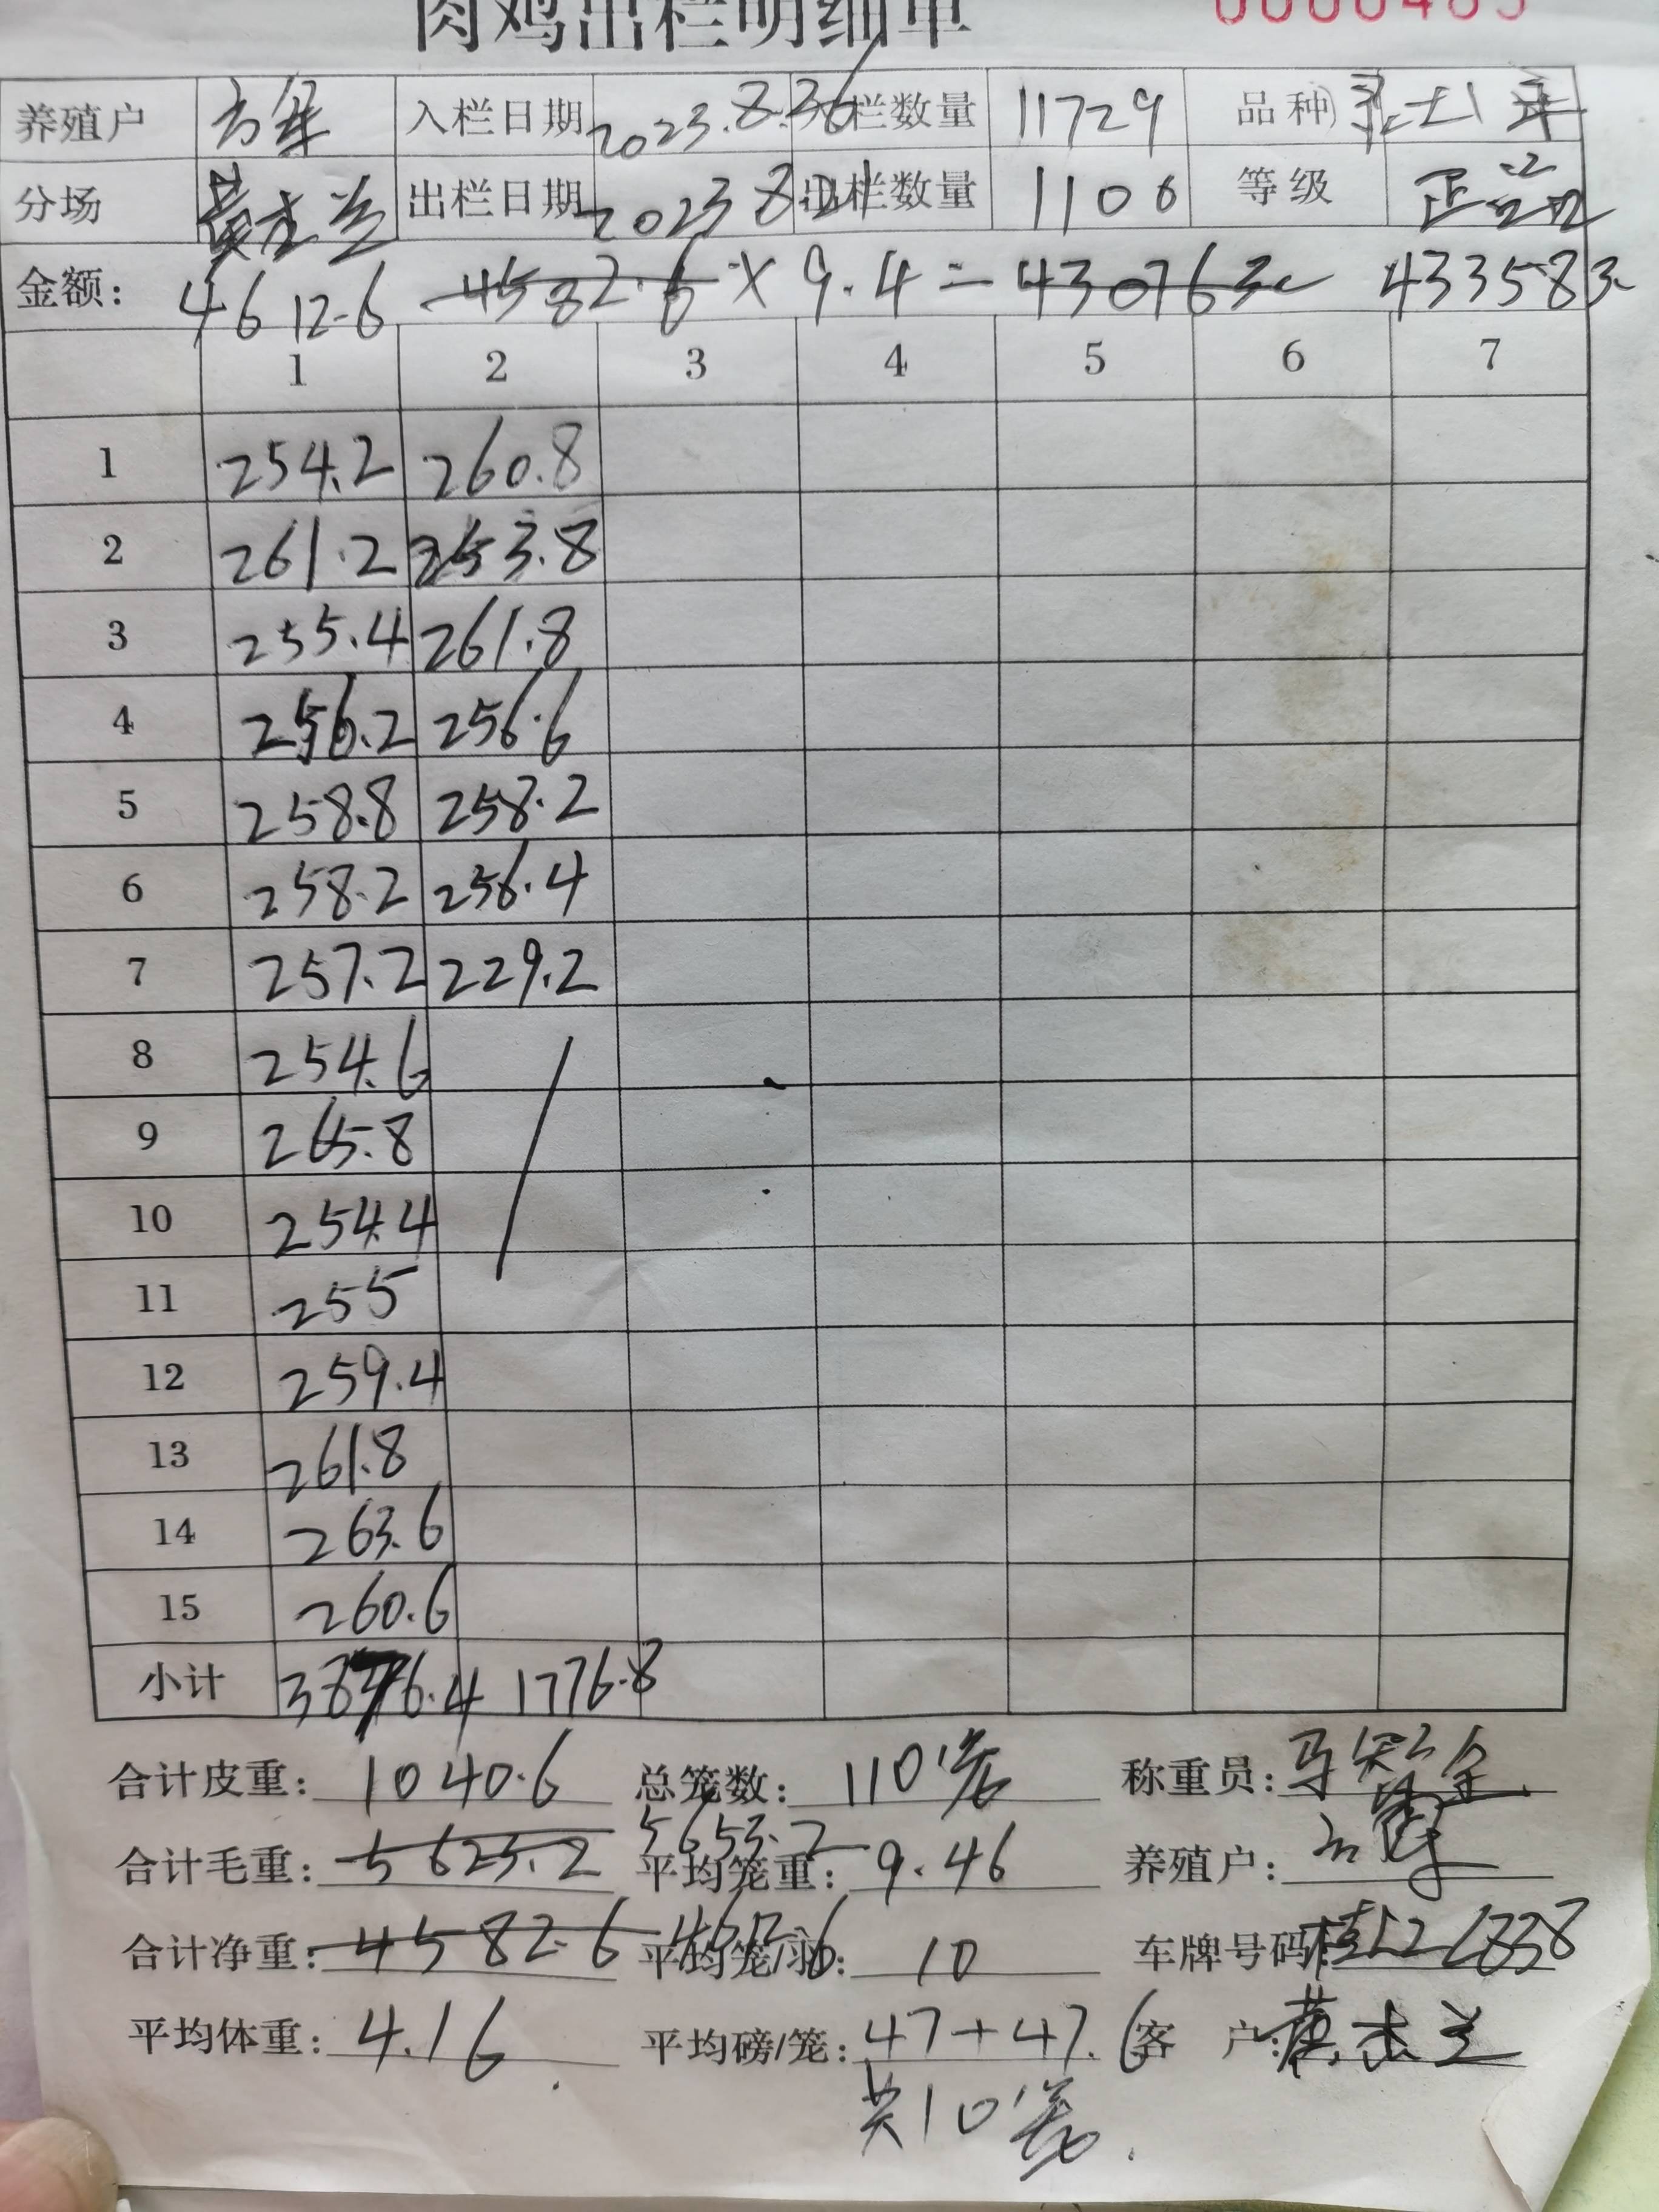 肉鸡出栏明细单 0000485
养殖户 入栏日期 2023.8.26 入栏数量 11729 品种
分场 黄杰兰 出栏日期 2023 8.21 出栏数量 1106 等级 正品
金额: 4612.6 4582.6 × 9.4 = 43076元 43358元
1 2 3 4 5 6 7
1 254.2 260.8
2 261.2 253.8
3 255.4 261.8
4 256.2 256.6
5 258.8 258.2
6 258.2 256.4
7 257.2 229.2
8 254.6
9 265.8
10 254.4
11 255
12 259.4
13 261.8
14 263.6
15 260.6
小计 3876.4 1776.8
合计皮重: 1040.6 总笼数: 110笼 称重员:
合计毛重: 5623.2 5653.2 平均笼重: 9.46 养殖户:
合计净重: 4582.6 4612.6 平均笼/羽: 10 车牌号码:
平均体重: 4.16 平均磅/笼: 47+47.6 客户: 黄杰兰
共10笼